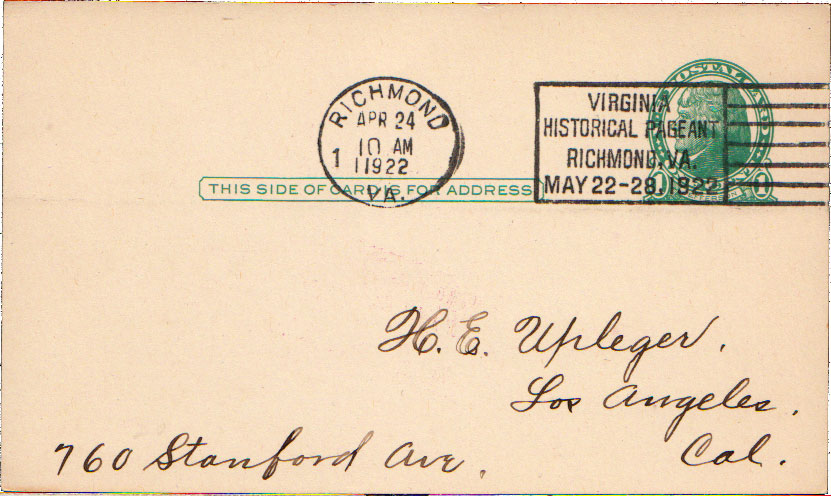 RICHMOND
APR 24
10 AM
1
1922
VA.
VIRGINIA
HISTORICAL PAGEANT
RICHMOND, VA.
MAY 22-28, 1922
POSTAL CARD
1 1
THIS SIDE OF CARD IS FOR ADDRESS
H. E. Upleger.
Los Angeles.
760 Stanford Ave. Cal.